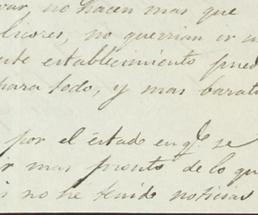 var, no hacen mas que
licores, no querrian ir a
nte establecimiento pued
para todo, y mas barato
por el estado en qe se
ir mas pronto de lo que
no he tenido noticias